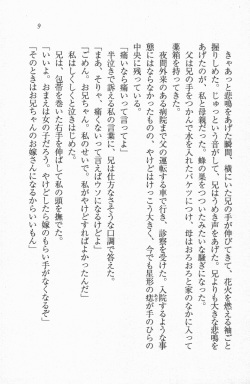 きゃあっと悲鳴をあげた瞬間、横にいた兄の手が伸びてきて、花火を燃える袖ごと
握りしめた。じゅっという音がして、兄はうめき声をあげた。兄よりも大きな悲鳴を
あげたのが、私と母親だった。蜂の巣をつついたみたいな騒ぎになった。
父は兄の手をつかんで水を入れたバケツにつけ、母はおろおろと家の中に飛び込んで
薬箱を持ってきた。
夜間外来のある病院まで父の運転する車で行き、診察を受けた。入院するような事
態にはならなかったものの、やけどはけっこう大きく、今でも星形の痣が手のひらの
中央に残っている。
「痛いなら痛いって言ってよ」
半泣きで訴える私の言葉に、兄は仕方なさそうな口調で答えた。
「まあ、そりゃ、痛くないって言えばウソになるけどよ」
「ごめん。お兄ちゃん。私のせいで。私がやけどすればよかったんだ」
私はしくしくと泣きはじめた。
兄は、包帯を巻いた右手を伸ばして私の頭を撫でた。
「いいよ。おまえは女の子だろう。やけどしたら嫁のもらい手がなくなるぞ」
「そのときはお兄ちゃんのお嫁さんになるからいいもん」
9